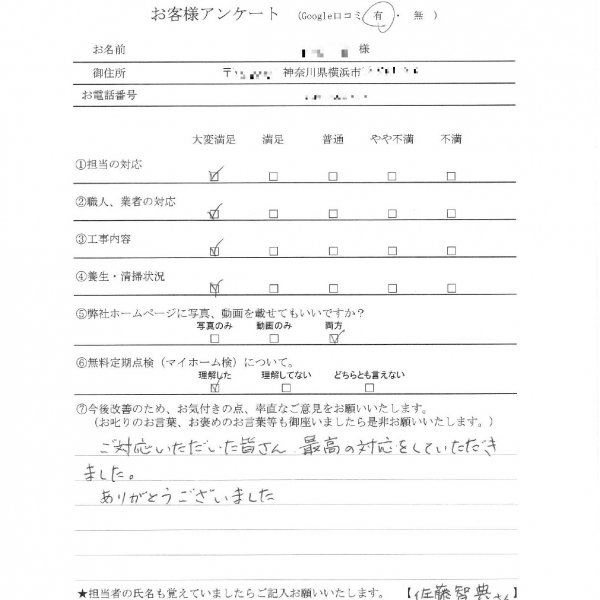 お客様アンケート （Google口コミ 有 ・ 無 ）
お名前 様
御住所 〒 神奈川県横浜市
お電話番号
大変満足 満足 普通 やや不満 不満
①担当の対応
②職人、業者の対応
③工事内容
④養生・清掃状況
⑤弊社ホームページに写真、動画を載せてもいいですか？
写真のみ 動画のみ 両方
⑥無料定期点検（マイホーム検）について。
理解した 理解してない どちらとも言えない
⑦今後改善のため、お気付きの点、率直なご意見をお願いいたします。
（お叱りのお言葉、お褒めのお言葉等も御座いましたら是非お願いします。）
ご対応いただいた皆さん 最高の対応をしていただき
ました。
ありがとうございました
★担当者の氏名も覚えていましたらご記入お願いいたします。 【佐藤智典さん】